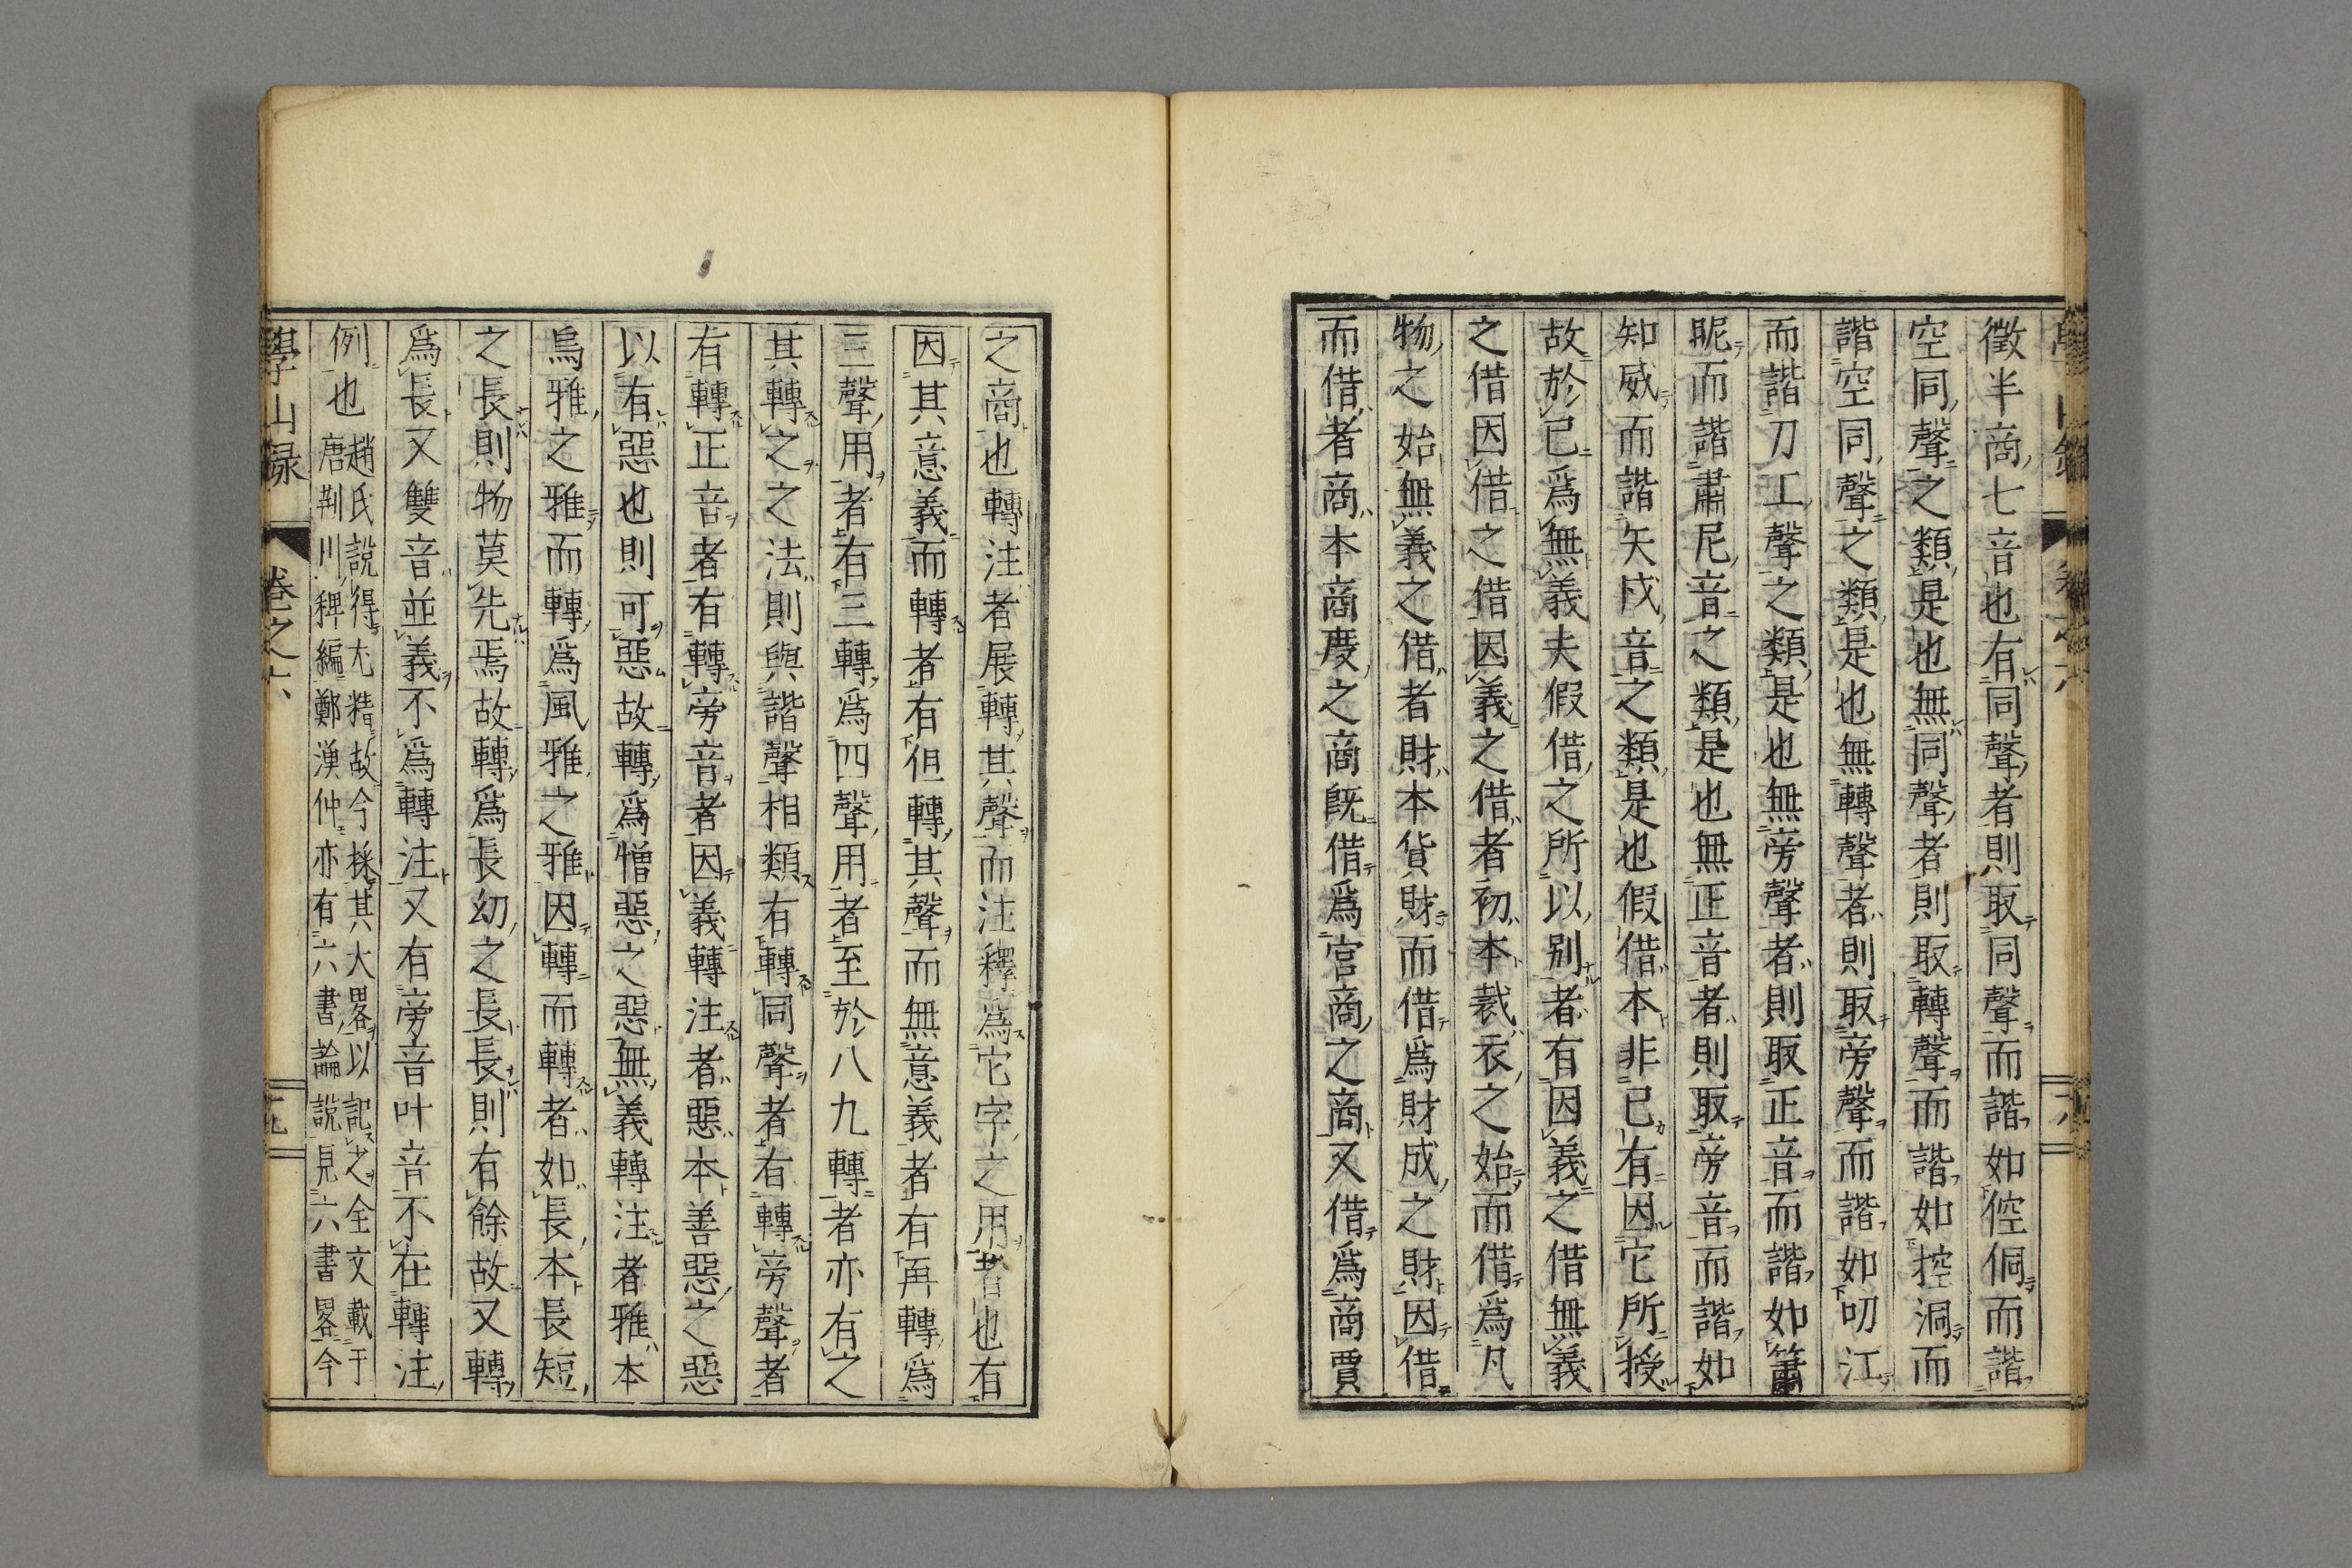 徵半商七音也有同聲者則取同聲而諧如倥侗而諧
空同聲之類是也無同聲者則取轉聲而諧如控洞而
諧空同聲之類是也無轉聲者則取旁聲而諧如叨江
而諧刀工聲之類是也無旁聲者則取正音而諧如簫
昵而諧肅尼音之類是也無正音者則取旁音而諧如
知威而諧矢戌音之類是也假借本非已有因它所授
故於已爲無義夫假借之所以別者有因義之借無義
之借因借之借因義之借者初本裁衣之始而借爲凡
物之始無義之借者財本貨財而借爲財成之財因借
而借者商本商度之商既借爲宮商之商又借爲商賈
之商也轉注者展轉其聲而注釋爲它字之用者也有
因其意義而轉者有但轉其聲而無意義者有再轉爲
三聲用者有三轉爲四聲用者至於八九轉者亦有之
其轉之之法則與諧聲相類有轉同聲者有轉旁聲者
有轉正音者有轉旁音者因義轉注者惡本善惡之惡
以有惡也則可惡故轉爲憎惡之惡無義轉注者雅本
烏雅之雅而轉爲風雅之雅因轉而轉者如長本長短
之長則物莫先焉故轉爲長幼之長長則有餘故又轉
爲長又雙音並義不爲轉注又有旁音叶音不在轉注
例也
趙氏說得尤精故今採其大畧以記之全文載于
唐荊川稗編鄭漁仲亦有六書論說見六書畧今
學山録 卷之六